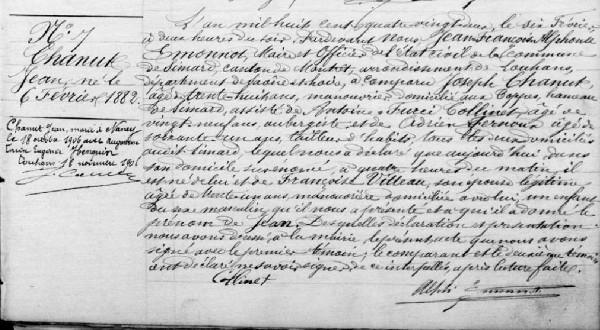 N° 7
Chanut
Jean, né le
6 Février, 1882.
Chanut Jean, marié à Nancy
le 18 octobre 1906 avec Augustine
Eugénie
Louhans 18 novembre 1906
L'an mil huit cent quatre vingt deux, le six Février
à deux heures du soir, Pardevant Nous, Jean François Alphonse
Emonnot, Maire et Officier de l'Etat civil de la Commune
de Simard, canton de Montret, arrondissement de Louhans,
département de Saône et Loire, a comparu Joseph Chanut,
âgé de trente huit ans, manouvrier, domicilié aux Coppes, hameau
de Simard, assisté de Antoine Collinet, âgé de
vingt neuf ans, aubergiste et de Adrien âgé de
soixante un ans, tailleur d'habits, tous les deux domiciliés
audit Simard, lequel nous a déclaré que aujourd'hui, dans
son domicile susénoncé, à quatre heures du matin il
est né de lui et de Françoise Villeau, son épouse légitime
âgée de trente un ans, manouvrière, domiciliée avec lui, un enfant
du sexe masculin qu'il nous a présenté et a qui il a donné le
prénom de Jean. Desquelles déclaration et présentation
nous avons dressé, à la mairie, le présent acte que nous avons
signé avec le premier témoin; le comparant et le deuxième témoin
ont déclaré ne savoir signer de ce interpellés, après lecture faite.
Collinet
Alph. Emonnot